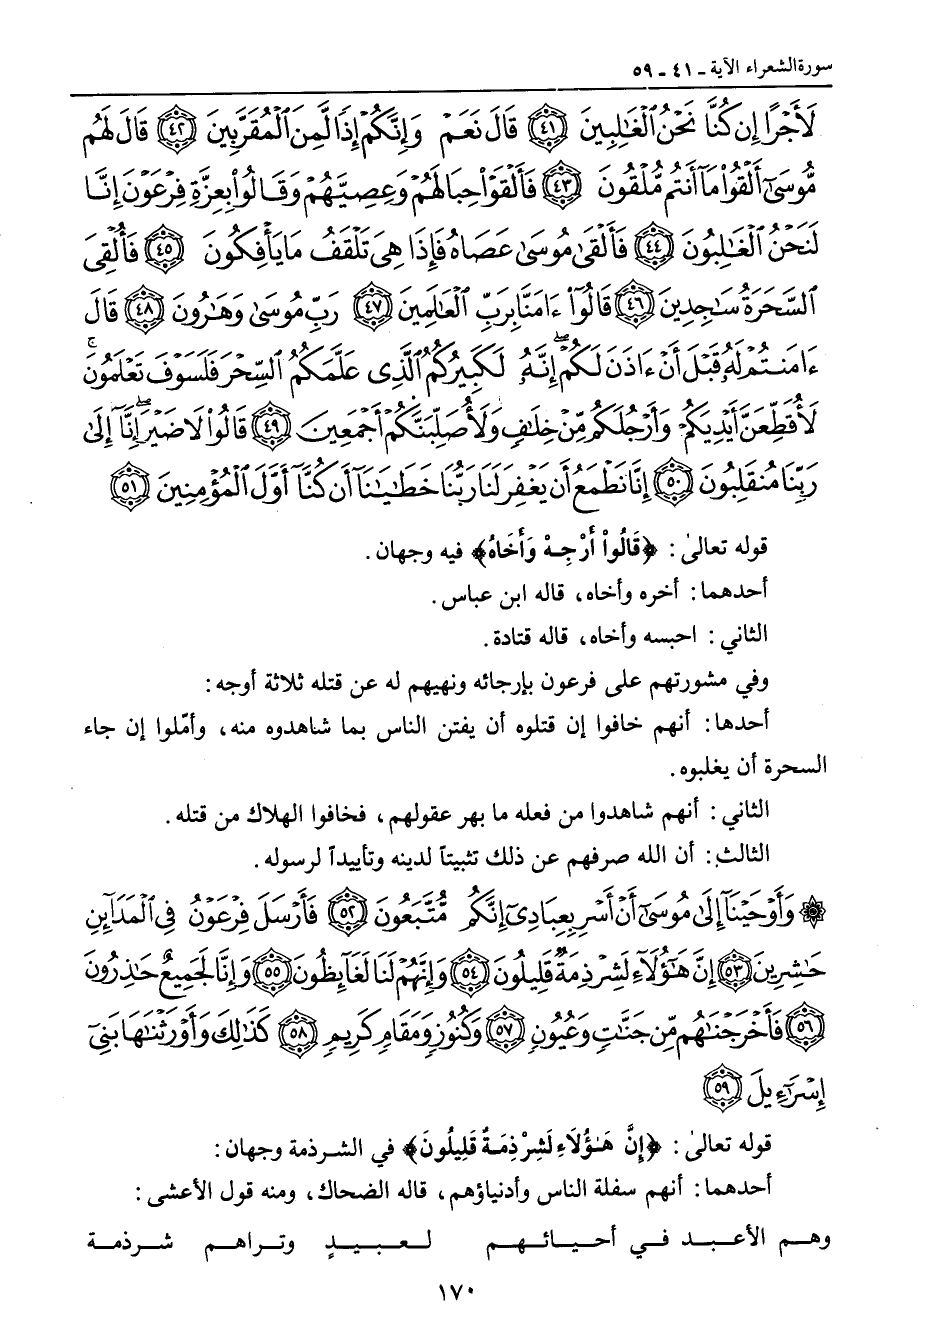 سورة الشعراء الآية ـ ٤١ ـ ٥٩
لَأَجْرًا إِن كُنَّا نَحْنُ ٱلْغَٰلِبِينَ ﴿٤١﴾ قَالَ نَعَمْ وَإِنَّكُمْ إِذًا لَّمِنَ ٱلْمُقَرَّبِينَ ﴿٤٢﴾ قَالَ لَهُم
مُّوسَىٰٓ أَلْقُوا۟ مَآ أَنتُم مُّلْقُونَ ﴿٤٣﴾ فَأَلْقَوْا۟ حِبَالَهُمْ وَعِصِيَّهُمْ وَقَالُوا۟ بِعِزَّةِ فِرْعَوْنَ إِنَّا
لَنَحْنُ ٱلْغَٰلِبُونَ ﴿٤٤﴾ فَأَلْقَىٰ مُوسَىٰ عَصَاهُ فَإِذَا هِىَ تَلْقَفُ مَا يَأْفِكُونَ ﴿٤٥﴾ فَأُلْقِىَ
ٱلسَّحَرَةُ سَٰجِدِينَ ﴿٤٦﴾ قَالُوٓا۟ ءَامَنَّا بِرَبِّ ٱلْعَٰلَمِينَ ﴿٤٧﴾ رَبِّ مُوسَىٰ وَهَٰرُونَ ﴿٤٨﴾ قَالَ
ءَامَنتُمْ لَهُۥ قَبْلَ أَنْ ءَاذَنَ لَكُمْ ۖ إِنَّهُۥ لَكَبِيرُكُمُ ٱلَّذِى عَلَّمَكُمُ ٱلسِّحْرَ فَلَسَوْفَ تَعْلَمُونَ ۚ
لَأُقَطِّعَنَّ أَيْدِيَكُمْ وَأَرْجُلَكُم مِّنْ خِلَٰفٍ وَلَأُصَلِّبَنَّكُمْ أَجْمَعِينَ ﴿٤٩﴾ قَالُوا۟ لَا ضَيْرَ ۖ إِنَّآ إِلَىٰ
رَبِّنَا مُنقَلِبُونَ ﴿٥٠﴾ إِنَّا نَطْمَعُ أَن يَغْفِرَ لَنَا رَبُّنَا خَطَٰيَٰنَآ أَن كُنَّآ أَوَّلَ ٱلْمُؤْمِنِينَ ﴿٥١﴾
قوله تعالىٰ: ﴿قَالُواْ أَرْجِهْ وَأَخَاهُ﴾ فيه وجهان.
أحدهما: أخره وأخاه، قاله ابن عباس.
الثاني: احبسه وأخاه، قاله قتادة.
وفي مشورتهم على فرعون بإرجائه ونهيهم له عن قتله ثلاثة أوجه:
أحدها: أنهم خافوا إن قتلوه أن يفتن الناس بما شاهدوه منه، وأمّلوا إن جاء
السحرة أن يغلبوه.
الثاني: أنهم شاهدوا من فعله ما بهر عقولهم، فخافوا الهلاك من قتله.
الثالث: أن الله صرفهم عن ذلك تثبيتاً لدينه وتأييداً لرسوله.
۞ وَأَوْحَيْنَآ إِلَىٰ مُوسَىٰٓ أَنْ أَسْرِ بِعِبَادِىٓ إِنَّكُم مُّتَّبَعُونَ ﴿٥٢﴾ فَأَرْسَلَ فِرْعَوْنُ فِى ٱلْمَدَآئِنِ
حَٰشِرِينَ ﴿٥٣﴾ إِنَّ هَٰٓؤُلَآءِ لَشِرْذِمَةٌ قَلِيلُونَ ﴿٥٤﴾ وَإِنَّهُمْ لَنَا لَغَآئِظُونَ ﴿٥٥﴾ وَإِنَّا لَجَمِيعٌ حَٰذِرُونَ
﴿٥٦﴾ فَأَخْرَجْنَٰهُم مِّن جَنَّٰتٍ وَعُيُونٍ ﴿٥٧﴾ وَكُنُوزٍ وَمَقَامٍ كَرِيمٍ ﴿٥٨﴾ كَذَٰلِكَ وَأَوْرَثْنَٰهَا بَنِىٓ
إِسْرَٰٓءِيلَ ﴿٥٩﴾
قوله تعالىٰ: ﴿إِنَّ هَٰؤُلَاءِ لَشِرْذِمَةٌ قَلِيلُونَ﴾ في الشرذمة وجهان:
أحدهما: أنهم سفلة الناس وأدنياؤهم، قاله الضحاك، ومنه قول الأعشى:
وهم الأعبد في أحيائهم لعبيدٍ وتراهم شرذمة
١٧٠